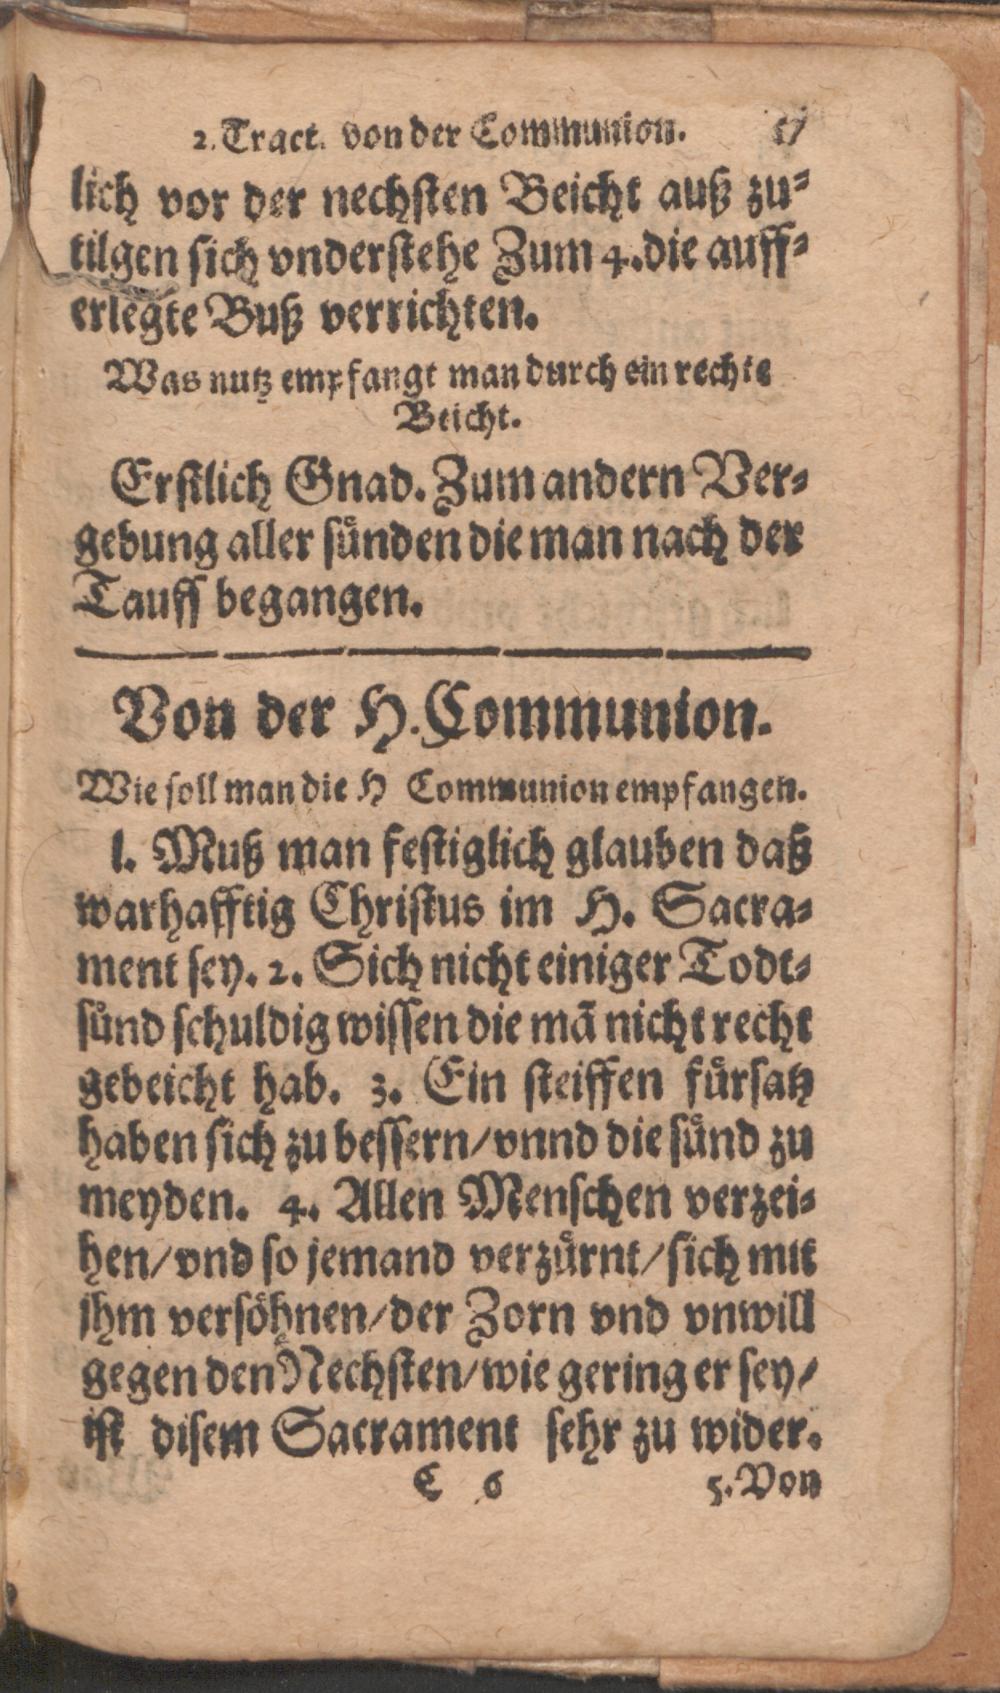 2. Tract. von der Communion.
lich vor der nechsten Beicht auß zu⸗
tilgen sich vnderstehe Zum 4. die auff⸗
erlegte Buß verrichten.
Was nutz empfangt man durch ein rechte
Beicht.
Erstlich Gnad. Zum andern Ver⸗
gebung aller sůnden die man nach der
Tauff begangen.
Von der H. Communion.
Wie soll man die H Communion empfangen.
1. Muß man festiglich glauben daß
warhafftig Christus im H. Sacra⸗
ment sey. 2. Sich nicht einiger Todt⸗
sůnd schuldig wissen die mã nicht recht
gebeicht hab. 3. Ein steiffen fůrsatz
haben sich zu bessern/vnnd die sůnd zu
meyden. 4. Allen Menschen verzei⸗
hen/vnd so jemand verzůrnt/sich mit
jhm versöhnen/der Zorn vnd vnwill
gegen den Nechsten/wie gering er sey/
ist disem Sacrament sehr zu wider.
C 6 5. Von